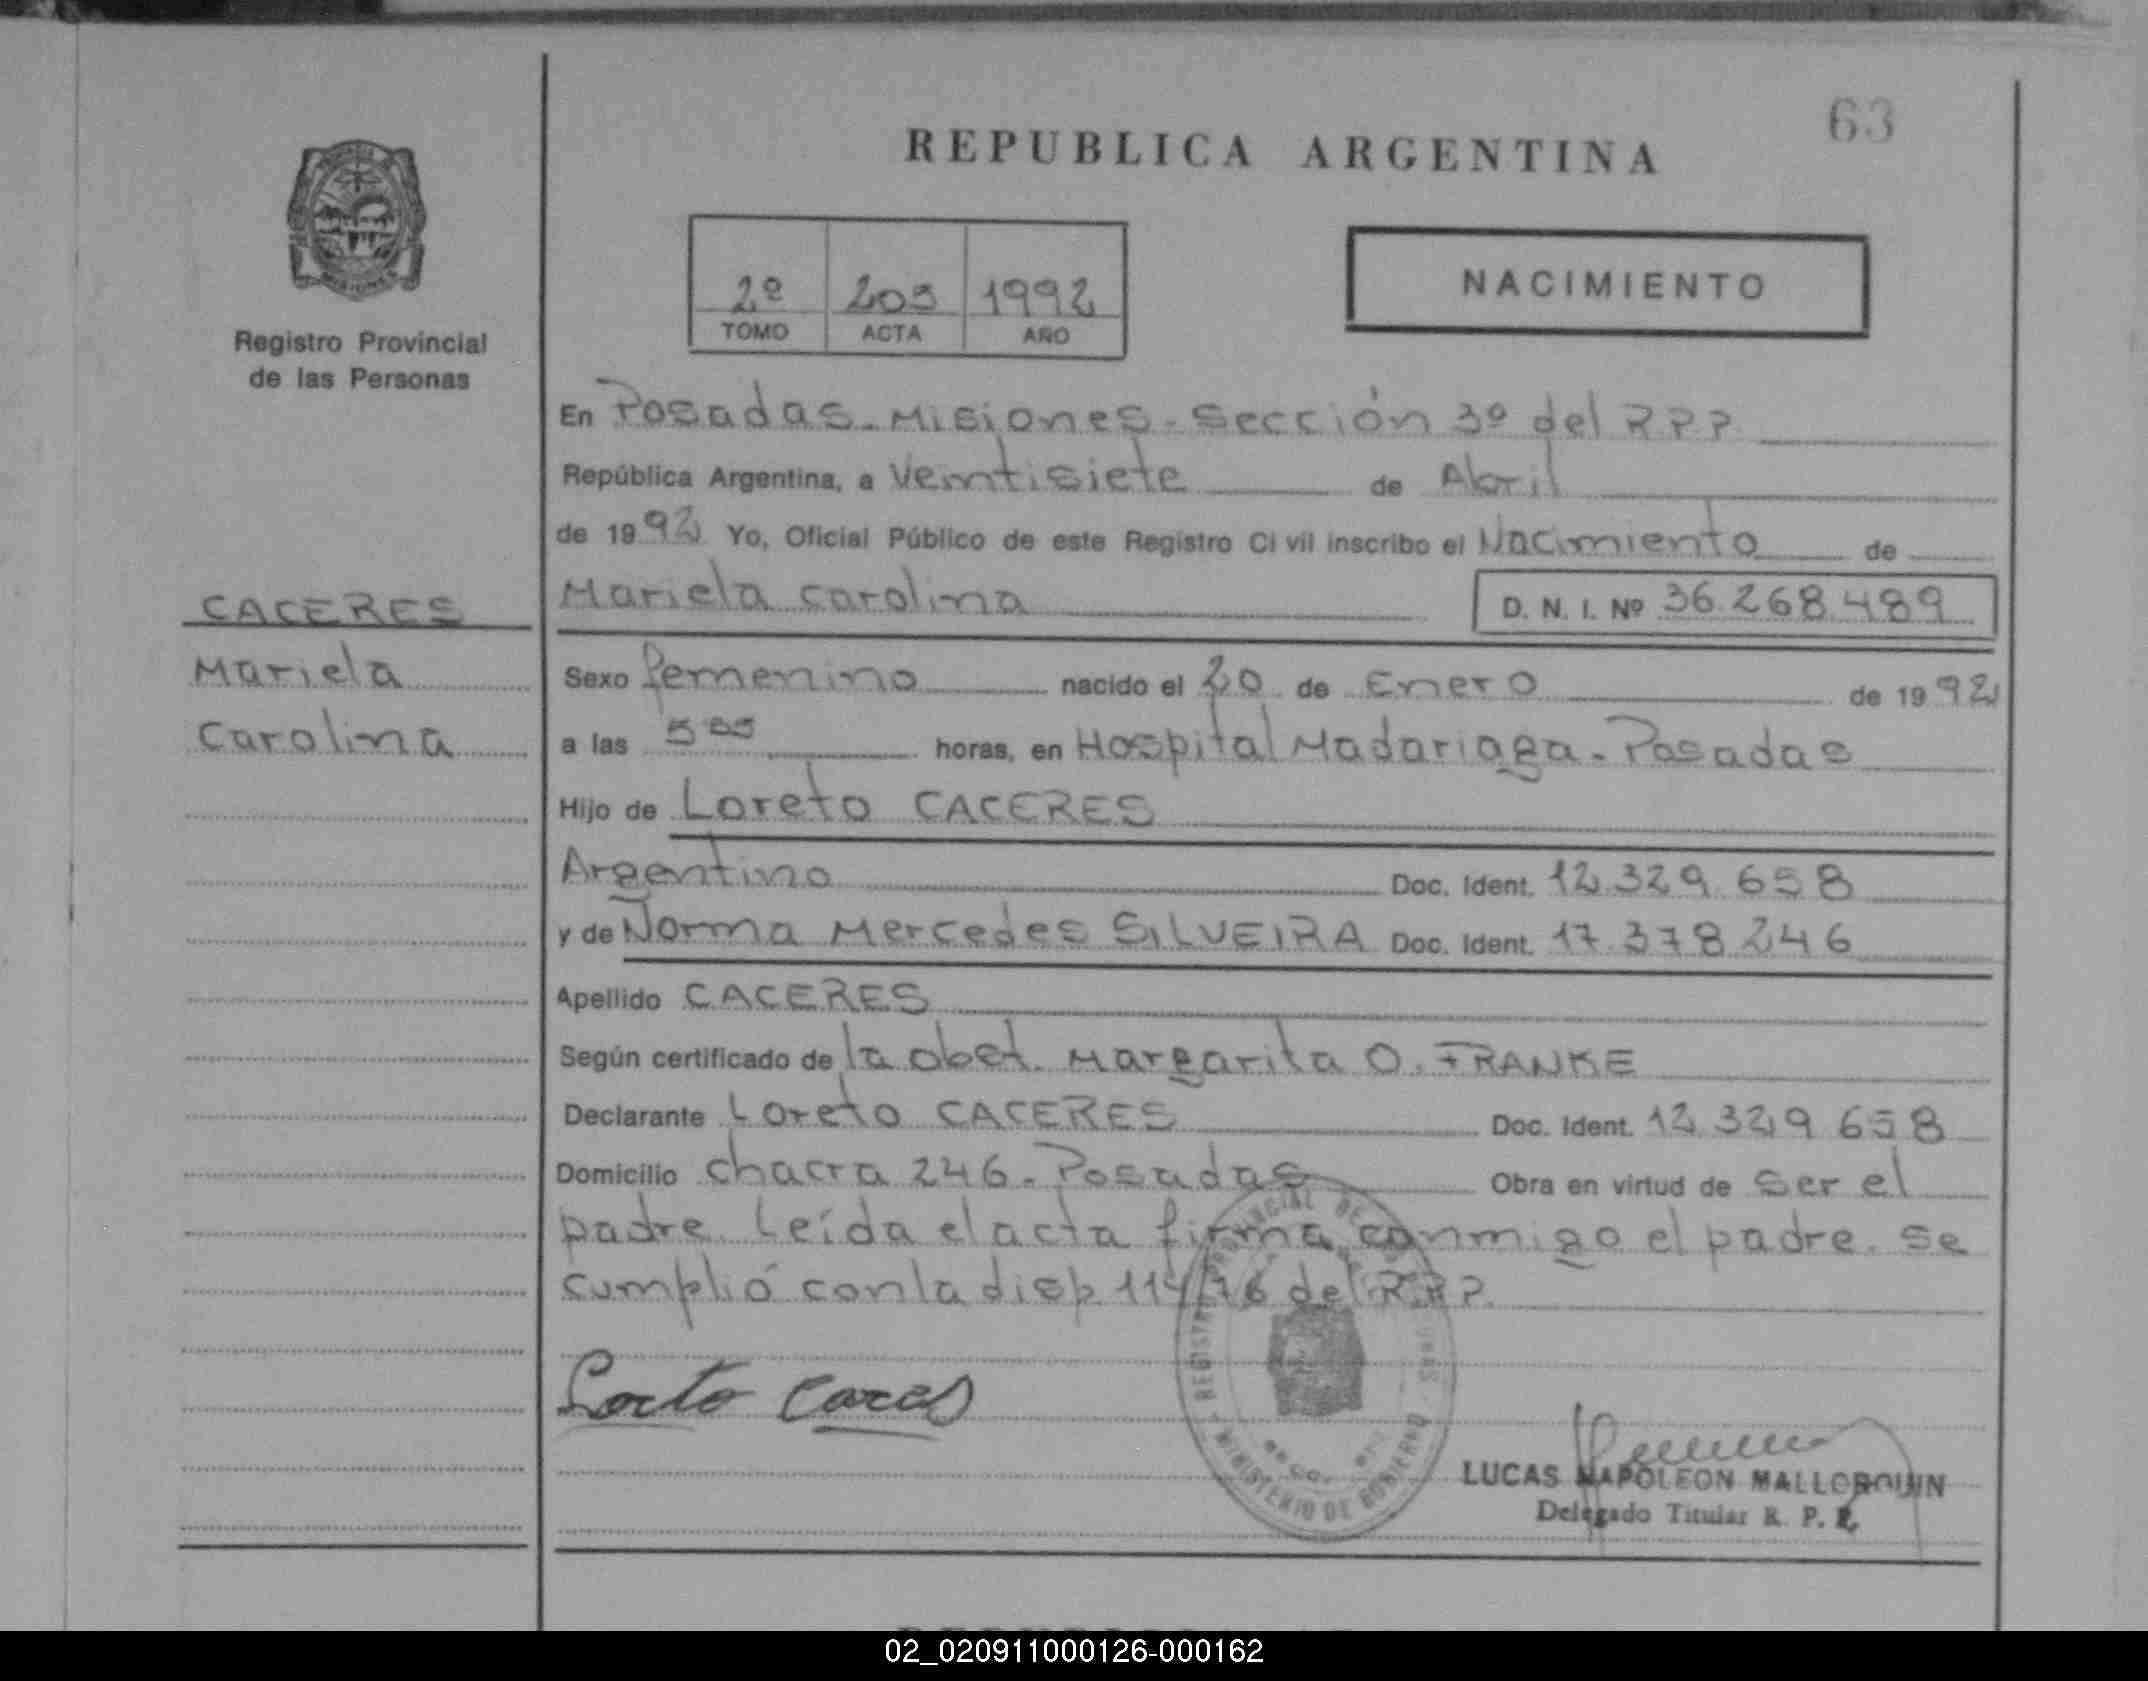 63
REPUBLICA ARGENTINA
2º 203 1992
TOMO ACTA AÑO
NACIMIENTO
Registro Provincial
de las Personas
En Posadas - Misiones - Sección 3º del R.P.P.
República Argentina, a Veintisiete de Abril
de 1992 Yo, Oficial Público de este Registro Civil inscribo el Nacimiento de
CACERES
Mariela
Carolina
Mariela Carolina D. N. I. Nº 36.268.489
Sexo femenino nacido el 20 de Enero de 1992
a las horas, en Hospital Madariaga - Posadas
Hijo de Loreto CACERES
Argentino Doc. Ident. 12.329.658
y de Norma Mercedes SILVEIRA Doc. Ident. 17.378.246
Apellido CACERES
Según certificado de la obst. Margarita O. FRANKE
Declarante Loreto CACERES Doc. Ident. 12.329.658
Domicilio chacra 246 - Posadas Obra en virtud de ser el
padre. Leída el acta firma conmigo el padre. Se
cumplió con la disp. 114/76 del R.P.P.
LUCAS NAPOLEON MALLORQUIN
Delegado Titular R. P. P.
REGISTRO PROVINCIAL DE
MINISTERIO DE GOBIERNO
02_020911000126-000162